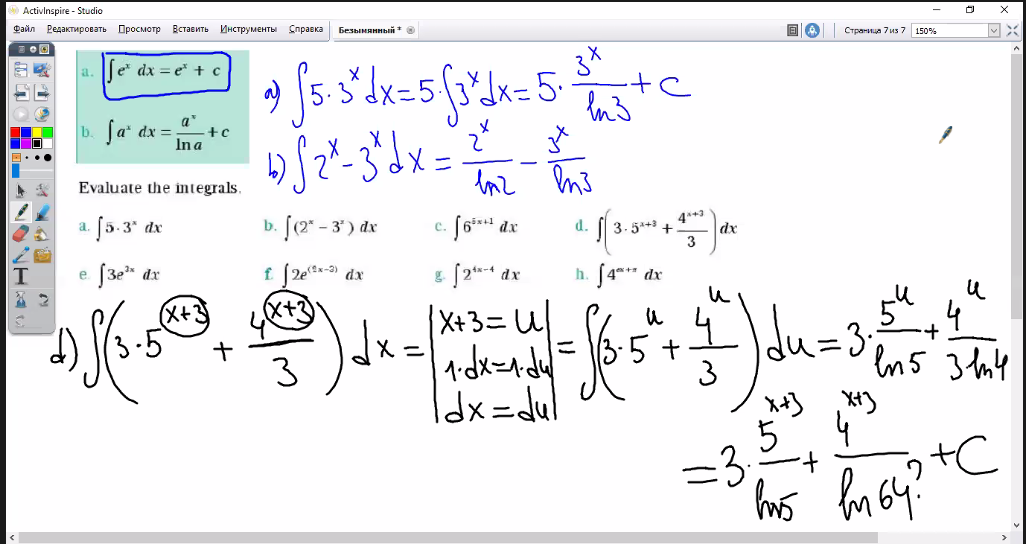 ActivInspire - Studio
Файл Редактировать Просмотр Вставить Инструменты Справка Безымянный * Страница 7 из 7 150%
a. ∫eˣ dx = eˣ + c
b. ∫aˣ dx = aˣ/ln a + c
a) ∫5·3ˣdx=5·∫3ˣdx=5·3ˣ/ln3+C
b) ∫2ˣ-3ˣdx=2ˣ/ln2-3ˣ/ln3
Evaluate the integrals.
a. ∫5·3ˣ dx b. ∫(2ˣ - 3ˣ) dx c. ∫6^(5x+1) dx d. ∫(3·5^(x+3) + 4^(x+3)/3) dx
e. ∫3e^(3x) dx f. ∫2e^(2x-3) dx g. ∫2^(4x-4) dx h. ∫4^(ex+π) dx
d) ∫(3·5^(x+3) + 4^(x+3)/3)dx = |x+3=u 1·dx=1·du dx=du| = ∫(3·5ᵘ+4ᵘ/3)du=3·5ᵘ/ln5+4ᵘ/3ln4
=3·5^(x+3)/ln5+4^(x+3)/ln64?+C
T